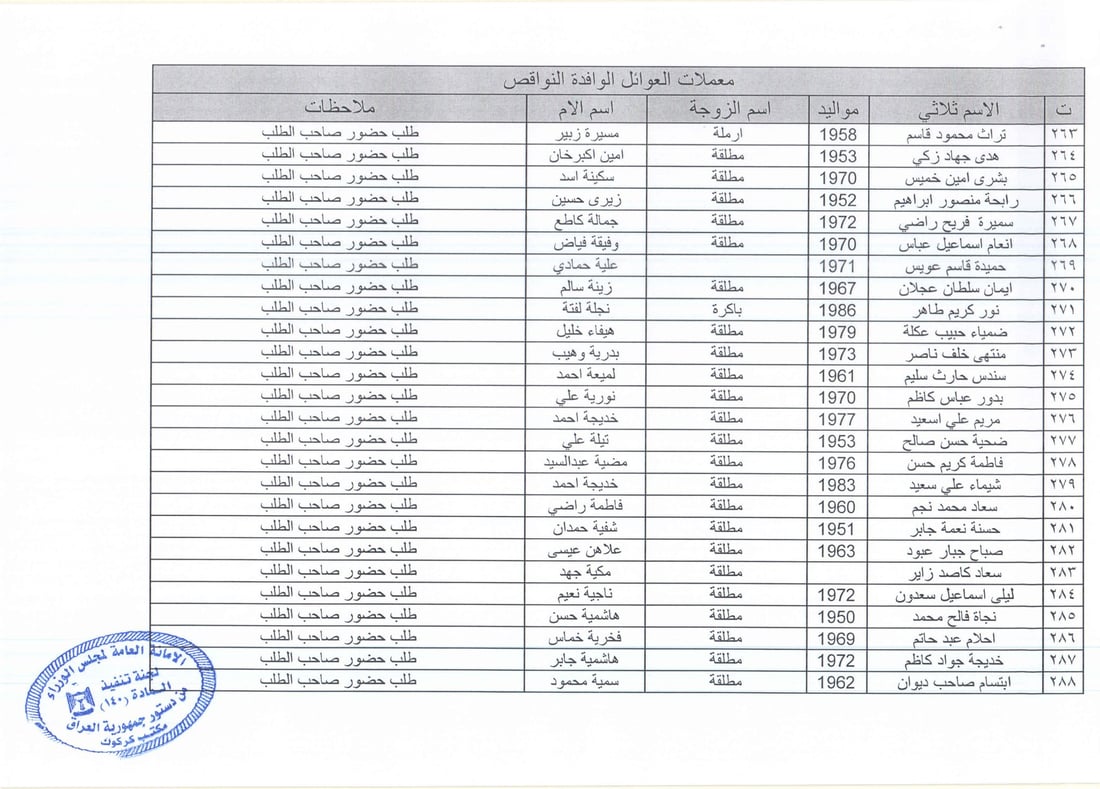 معملات العوائل الوافدة النواقص
ت الاسم ثلاثي مواليد اسم الزوجة اسم الام ملاحظات
٢٦٣ تراث محمود قاسم 1958 ارملة مسيرة زبير طلب حضور صاحب الطلب
٢٦٤ هدى جهاد زكي 1953 مطلقة امين اكبرخان طلب حضور صاحب الطلب
٢٦٥ بشرى امين خميس 1970 مطلقة سكينة اسد طلب حضور صاحب الطلب
٢٦٦ رابحة منصور ابراهيم 1952 مطلقة زيرى حسين طلب حضور صاحب الطلب
٢٦٧ سميرة فريح راضي 1972 مطلقة جمالة كاطع طلب حضور صاحب الطلب
٢٦٨ انعام اسماعيل عباس 1970 مطلقة وفيقة فياض طلب حضور صاحب الطلب
٢٦٩ حميدة قاسم عويس 1971 علية حمادي طلب حضور صاحب الطلب
٢٧٠ ايمان سلطان عجلان 1967 مطلقة زينة سالم طلب حضور صاحب الطلب
٢٧١ نور كريم طاهر 1986 باكرة نجلة لفتة طلب حضور صاحب الطلب
٢٧٢ ضمياء حبيب عكلة 1979 مطلقة هيفاء خليل طلب حضور صاحب الطلب
٢٧٣ منتهى خلف ناصر 1973 مطلقة بدرية وهيب طلب حضور صاحب الطلب
٢٧٤ سندس حارث سليم 1961 مطلقة لميعة احمد طلب حضور صاحب الطلب
٢٧٥ بدور عباس كاظم 1970 مطلقة نورية علي طلب حضور صاحب الطلب
٢٧٦ مريم علي اسعيد 1977 مطلقة خديجة احمد طلب حضور صاحب الطلب
٢٧٧ ضحية حسن صالح 1953 مطلقة تيلة علي طلب حضور صاحب الطلب
٢٧٨ فاطمة كريم حسن 1976 مطلقة مضية عبدالسيد طلب حضور صاحب الطلب
٢٧٩ شيماء علي سعيد 1983 مطلقة خديجة احمد طلب حضور صاحب الطلب
٢٨٠ سعاد محمد نجم 1960 مطلقة فاطمة راضي طلب حضور صاحب الطلب
٢٨١ حسنة نعمة جابر 1951 مطلقة شفية حمدان طلب حضور صاحب الطلب
٢٨٢ صباح جبار عبود 1963 مطلقة علاهن عيسى طلب حضور صاحب الطلب
٢٨٣ سعاد كاصد زاير مطلقة مكية جهد طلب حضور صاحب الطلب
٢٨٤ ليلى اسماعيل سعدون 1972 مطلقة ناجية نعيم طلب حضور صاحب الطلب
٢٨٥ نجاة فالح محمد 1950 مطلقة هاشمية حسن طلب حضور صاحب الطلب
٢٨٦ احلام عبد حاتم 1969 مطلقة فخرية خماس طلب حضور صاحب الطلب
٢٨٧ خديجة جواد كاظم 1972 مطلقة هاشمية جابر طلب حضور صاحب الطلب
٢٨٨ ابتسام صاحب ديوان 1962 مطلقة سمية محمود طلب حضور صاحب الطلب
الامانة العامة لمجلس الوزراء
لجنة تنفيذ
المادة (١٤٠)
من دستور جمهورية العراق
مكتب كركوك